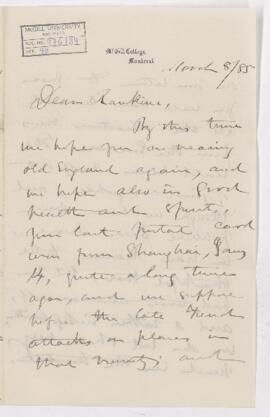 McGILL UNIVERSITY
ARCHIVES
ACC. NO.
REF.
McGill College,
Montreal.
March 8/85
Dear Rankine,
By this time
we hope you are nearing
old England again, and
we hope also in good
health and spirits,
your last postal card
was from Shanghai, Jany
14, quite a long time
ago, and we suppose
before the late French
attacks on places in
that vicinity and